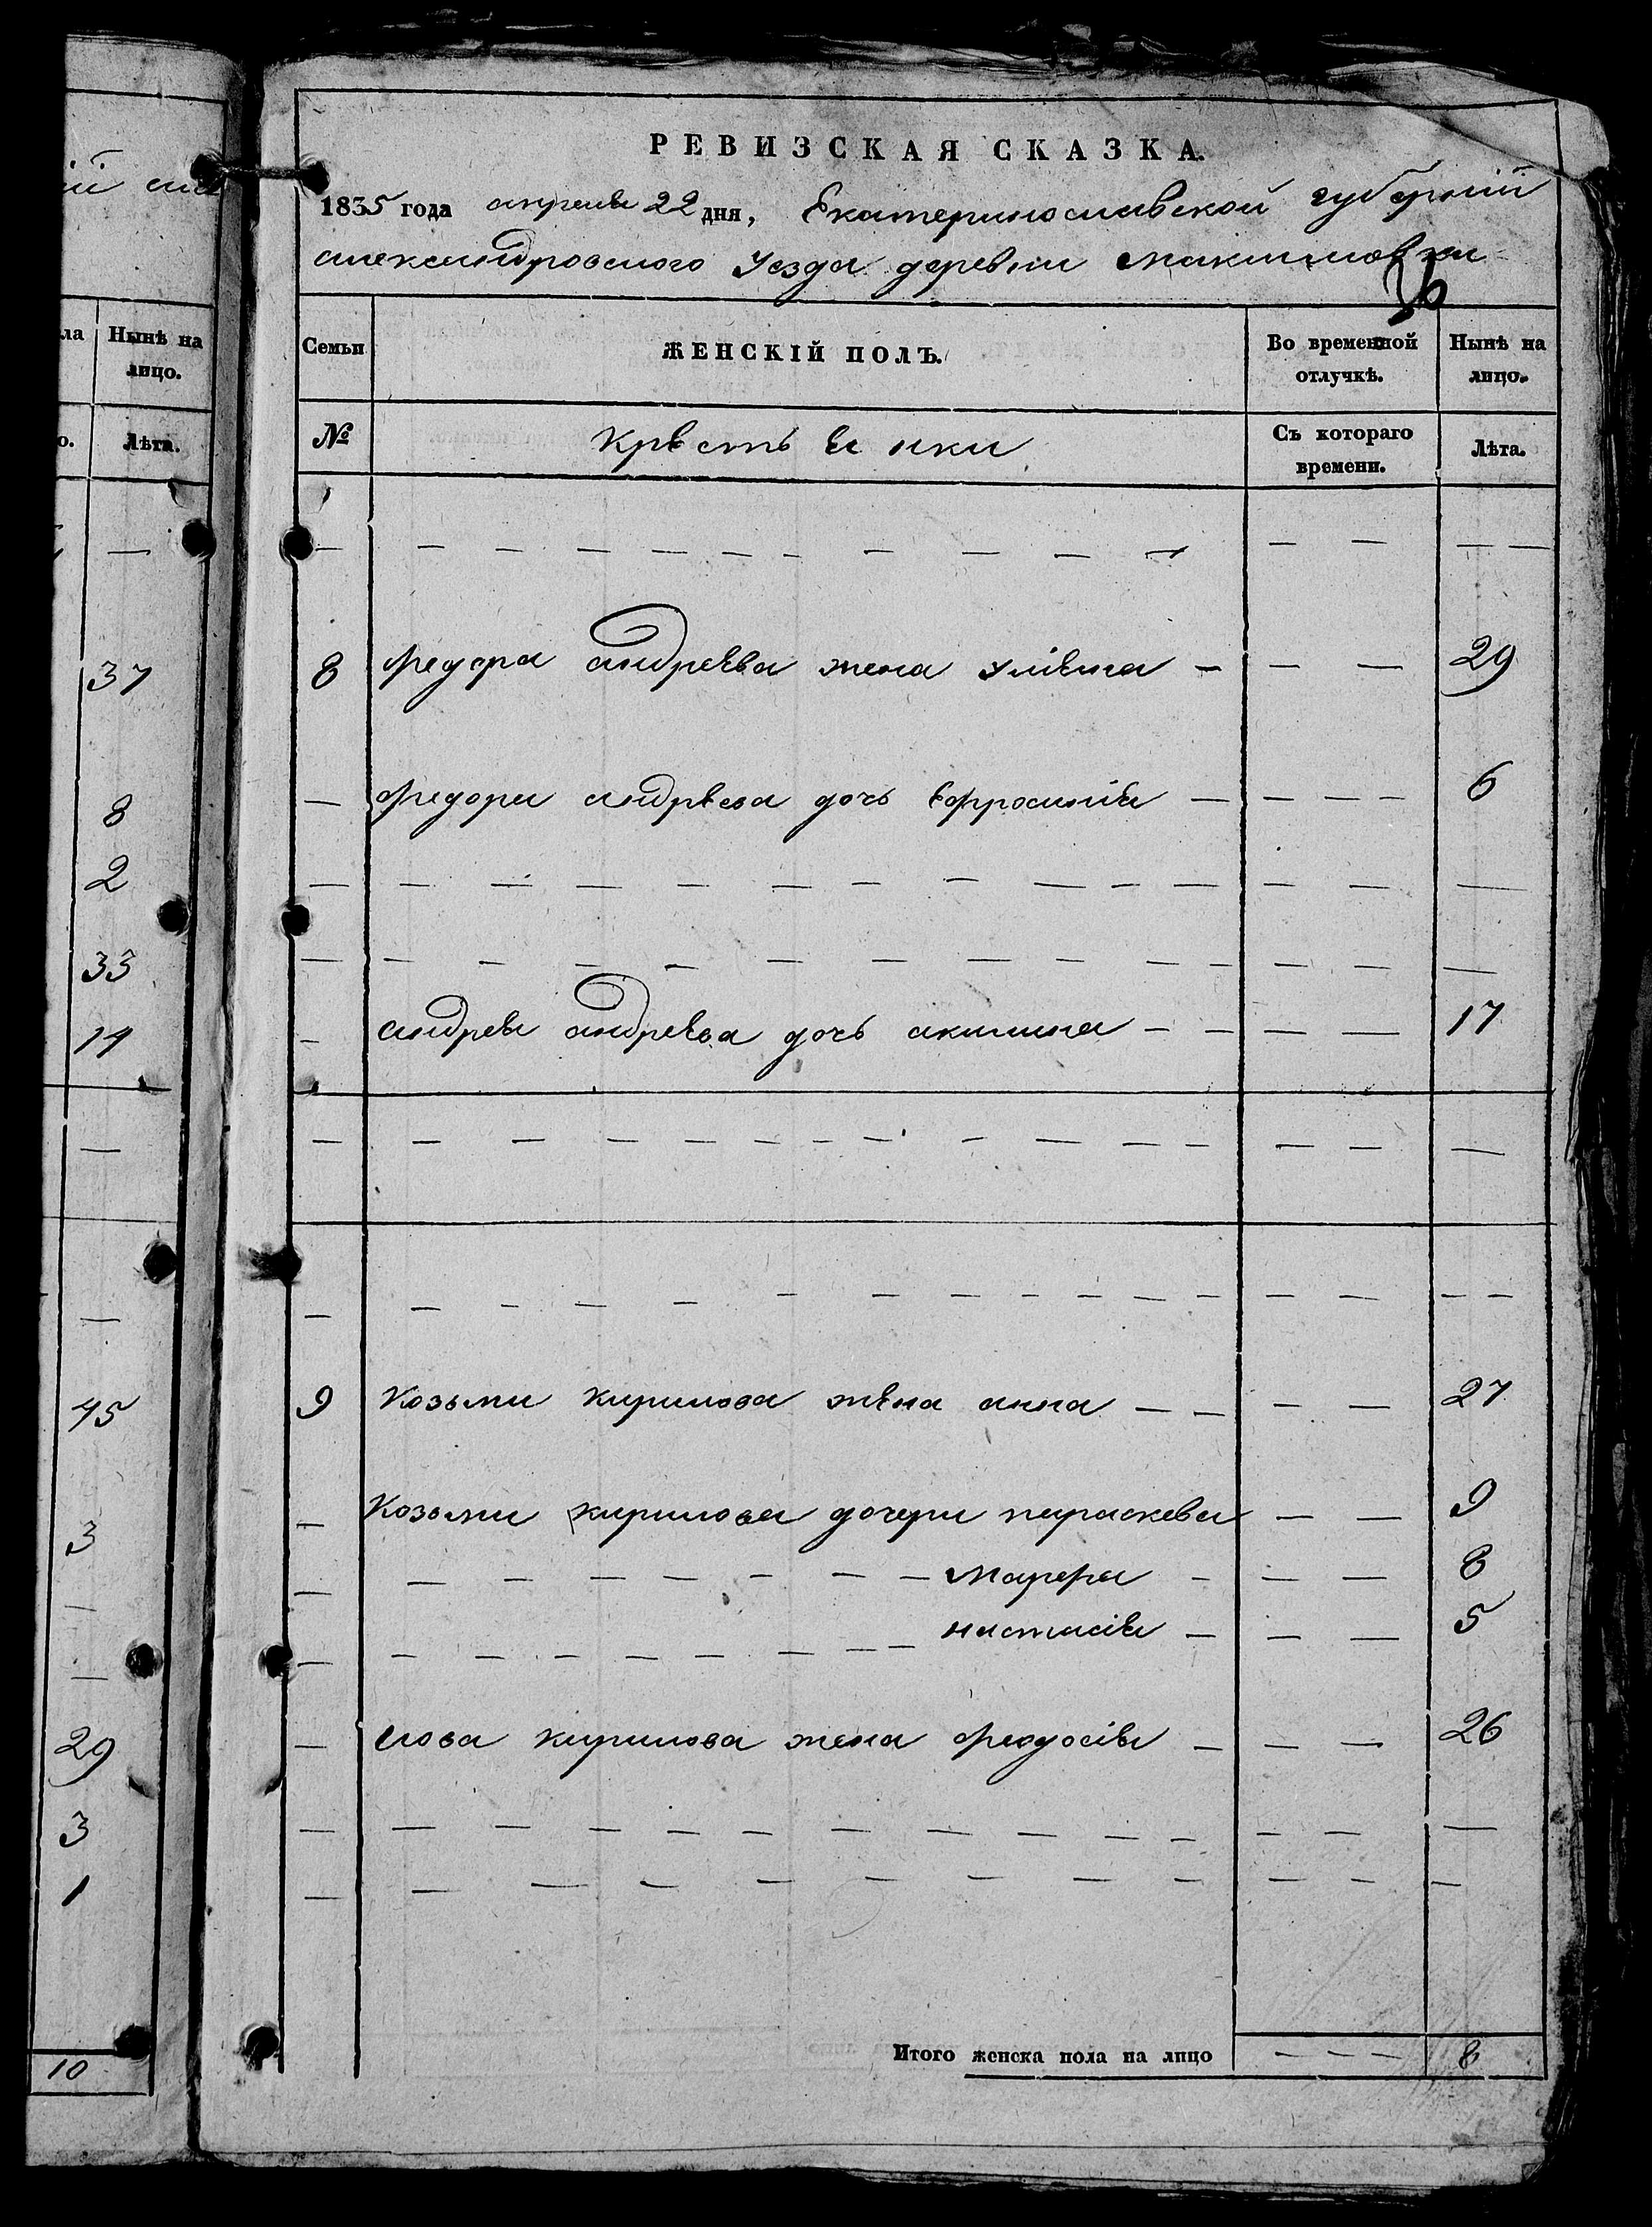 ій
ла
Нынѣ на
лицо.
о.
Лѣта.
—
37
8
2
33
14
—
—
45
3
—
—
29
3
1
10
РЕВИЗСКАЯ СКАЗКА.
1835 года апреля 22 дня, Екатеринославской губерній
александровского Уезда деревни максимовки
Семьи
ЖЕНСКІЙ ПОЛЪ.
Во временной
отлучкѣ.
Нынѣ на
лицо.
№
Крестьянки
Съ котораго
времени.
Лѣта.
8 федора андреева жена улияна — — — 29
— федора андреева дочь ефросинія — — — — 6
— андрея андреева дочь акилина — — — — 17
9 Козьми кирилова жена анна — — — — 27
— Козьми кирилова дочери параскева — — 9
— — — — — — — — марфа — — — 8
— — — — — — — — настасія — — — 5
— иова кирилова жена феодосія — — — 26
Итого женска пола на лицо — — — 8